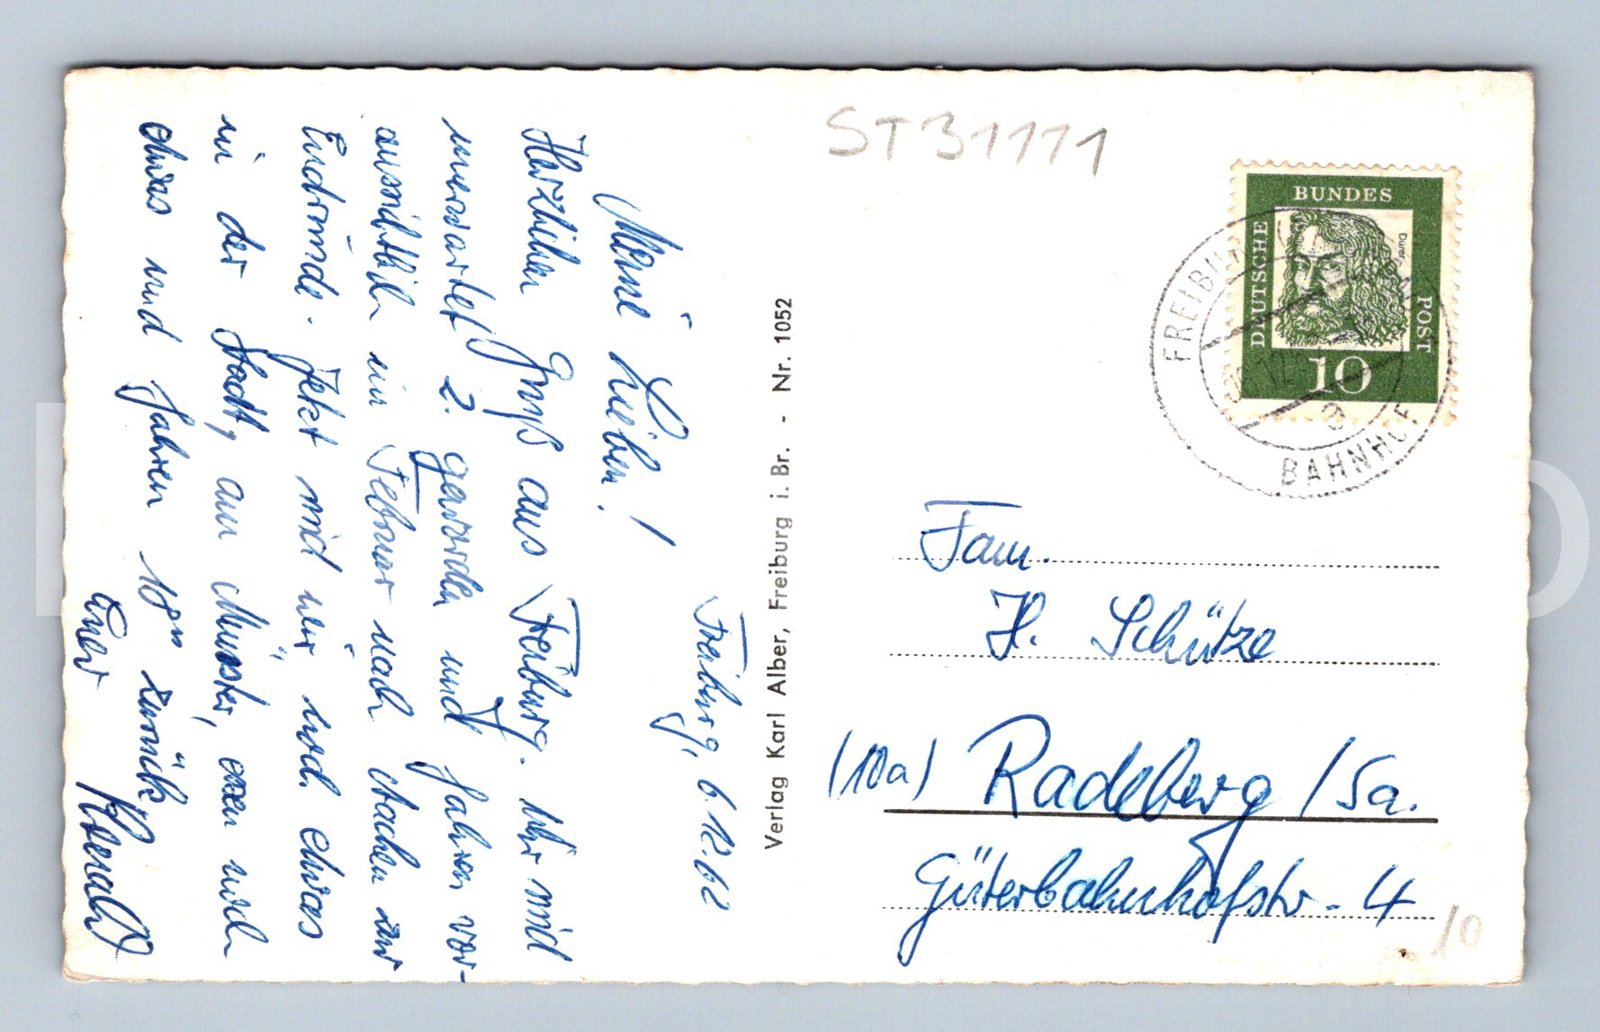 Freiburg, 6.12.62
Meine Lieben!
Herzlichen Gruß aus Freiburg. Wir sind
unerwartet 2. geworden und fahren vor-
aussichtlich im Februar nach Aachen zur
Endrunde. Jetzt sind wir noch etwas
in der Stadt, am Münster, essen noch
etwas und fahren 18 zurück.
Euer
Verlag Karl Alber, Freiburg i. Br. - Nr. 1052
ST31111
DEUTSCHE BUNDES POST
10
FREIBURG
BAHNHOF
Fam.
H. Schütze
(10a) Radeberg /Sa.
Güterbahnhofstr. 4
10